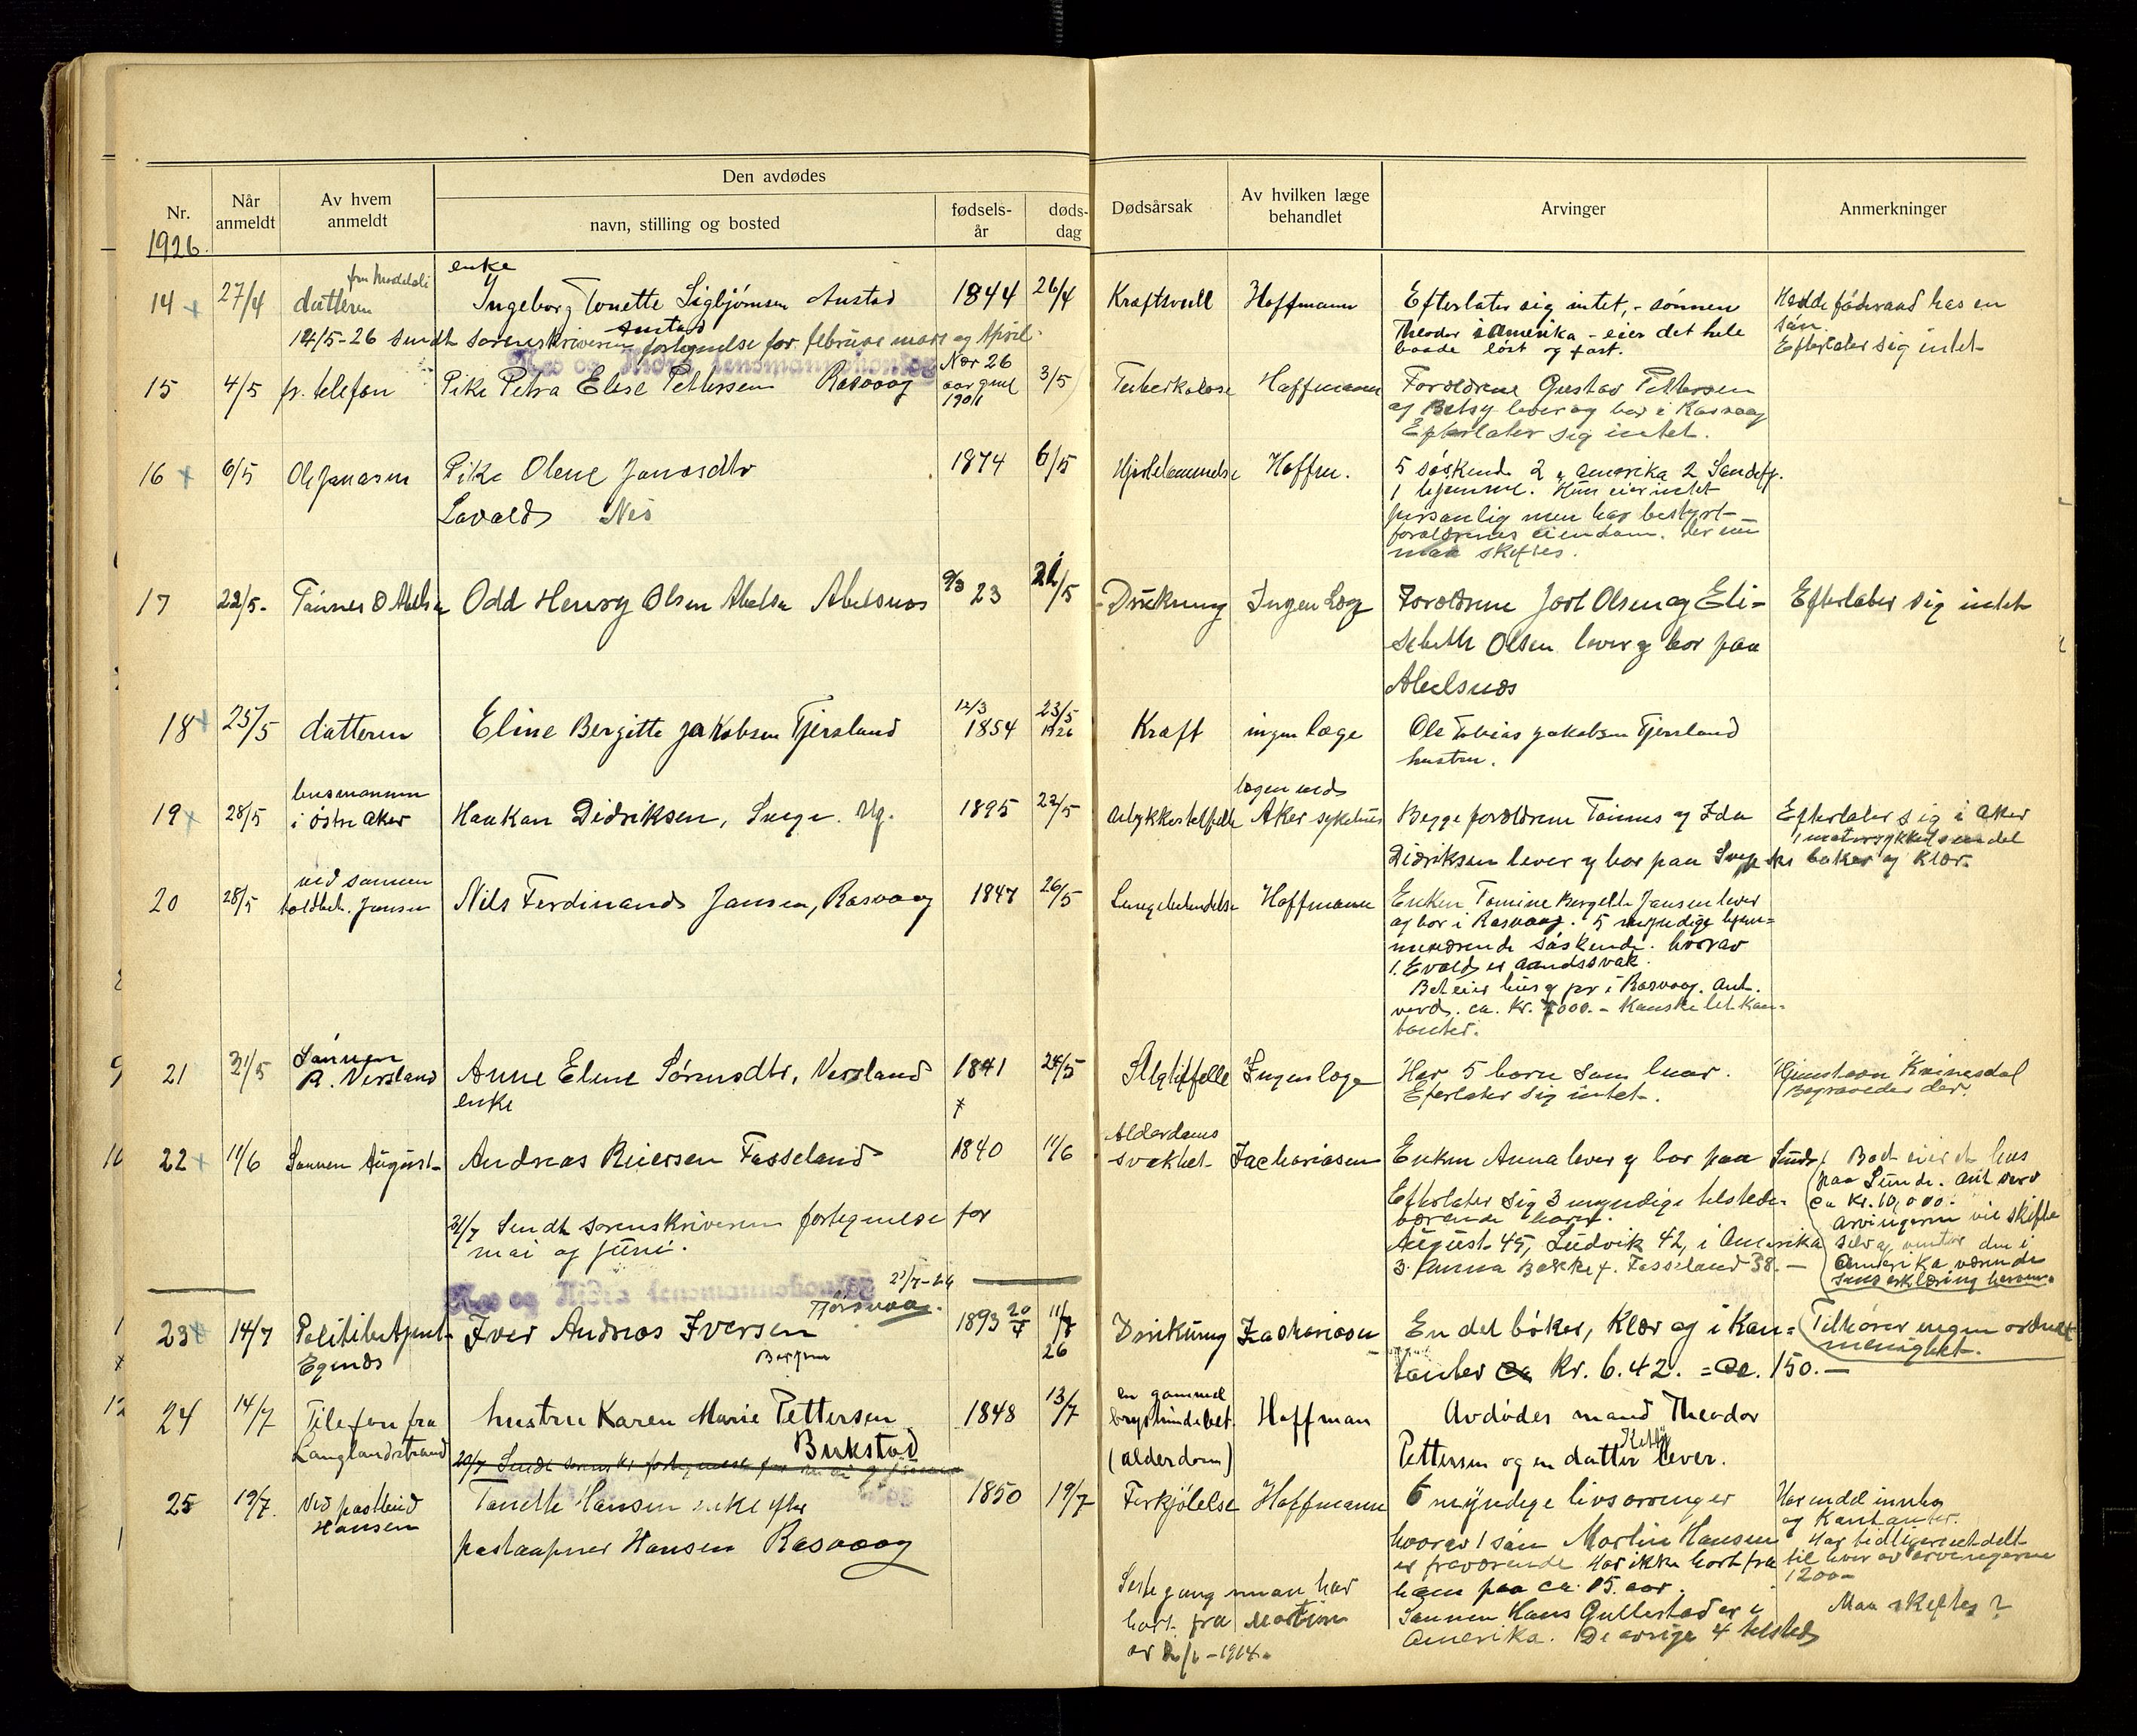 Den avdødes
Nr.
Når anmeldt
Av hvem anmeldt
navn, stilling og bosted
fødsels-år
døds-dag
Dødsårsak
Av hvilken læge behandlet
Arvinger
Anmerkninger
1926.
enke
14 27/4 datteren Ingeborg Tonette Sigbjørnsen Austad 1844 26/4 Kræftsvulst Hoffmann Efterlater sig intet, - sønnen
Theodor i Amerika - eier det hele
baade løst og fast.
Hadde føderaad hos en
søn.
Efterlater sig intet
14/5-26 sendt sorenskriveren fortegnelse for februar mars og April
15 4/5 pr. telefon Pike Petra Elise Pettersen Rasvaag Nær 26
aar gml
1901 3/5 Tuberkulose Hoffmann Forældrene Gustav Pettersen
og Betsy lever og bor i Rasvaag
Efterlater sig intet.
16 6/5 Ole Jonasen Pike Olene Jonasdtr 1874 6/5 Hjertelammelse Hoffm. 5 søskende 2 i Amerika 2 Sandefj.
Lavold Nes
1 hjemme. Hun eier intet
personlig men har bestyrt
forældrenes eiendom. der nu
maa skiftes.
17 22/5- Tønnes O Abelsen Odd Henry Olsen Abelsen Abelsnes 9/3 23 21/5 Drukning Ingen Læge Forældrene Joel Olsen og Eli-
sebeth Olsen lever og bor paa
Abelsnes
Efterlater sig intet
18 25/5 datteren Eline Bergitte Jakobsen Tjersland 12/3
1854 23/5
1926 Kræft ingen læge Ole Tobias Jakobsen Tjersland
hustru.
19 28/5 lensmannen
i østre Aker Haakon Didriksen, Svege. Ug. 1895 22/5 Ulykkestilfelle lægen ved
Aker sykehus Begge forældrene Tønnes og Ida
Didriksen lever og bor paa Svege
Efterlater sig i Aker
1 motorsykkel endel
bøker og klær.
20 28/5 ved sønnen
toldbetj. Jansen Nils Ferdinand Jansen, Rasvaag 1847 26/5 Lungebetendelse Hoffmann Enken Tomine Bergette Jansen lever
og bor i Rasvaag. 5 myndige hjem-
meværende søskende. hvorav
1. Evald er aandssvak.
Bet eier hus og pr i Rasvaag. Ant.
verd. ca. kr. 7000.- Kanske litt kon-
tanter.
21 31/5 Sønnen
R. Versland Anne Elene Sørensdtr, Versland
enke 1841 24/5 Slagtilfelle Ingen læge Har 5 barn som lever.
Efterlater sig intet.
Hjemstavn Kvinesdal
Begraves der.
22 11/6 Sønnen August Andreas Reiersen Fosseland 1840 11/6 Alderdoms
svakhet Zachariasen Enken Anna lever og bor paa Sunde
Efterlater sig 3 myndige tilstede-
værende barn.
August 45, Ludvik 42, i Amerika
3. Anna Bakke f. Fosseland 38.-
Boet eier et hus
paa Sunde. ant verd
ca kr. 10,000.-
Arvingerne vil skifte
selv og venter den i
Amerika værende
sens erklæring herom.
21/7 Sendt sorenskriveren fortegnelse for
mai og Juni.
21/7-26
23 14/7 Politibetjent
Egenes Iver Andreas Iversen
Bergen 1893 20/4 11/7
26 Drukning Zachariasen En del bøker, Klær og i kon-
tanter kr. 6.42. = Ca. 150.-
Tilhører ingen ordnet
menighet.
24 14/7 Telefon fra
Langlandstrand hustru Karen Marie Pettersen
Bukstad 1848 13/7 en gammel
(alderdom) Hoffman Avdødes mand Theodor
Pettersen og en datter lever.
25 19/7. Ved postbud
Hansen Tonette Hansen enke efter
postaapner Hansen Rasvaag 1850 19/7 Forkjølelse Hoffmann 6 myndige livsarvinger
hvorav 1 søn Martin Hansen
er fraværende Har ikke hørt fra
ham paa ca. 15. aar.
Sønnen Hans Gullestad er i
Amerika. De øvrige 4 tilsted
Har endel innbo
og Kontanter.
Har tidligere utdelt
til hver av arvingerne
1200-
Maa skiftes?
Siste gang man har
hørt fra Martin